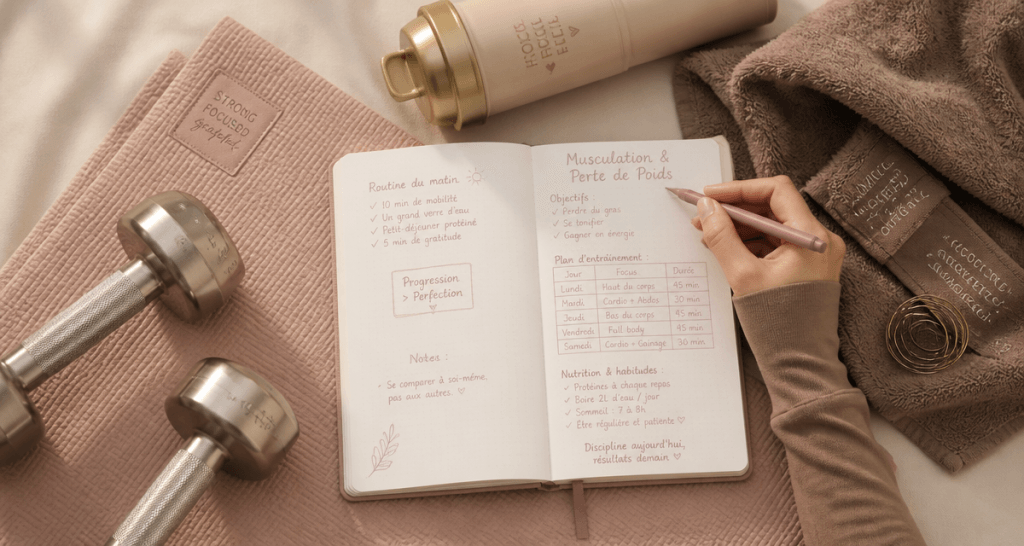 STRONG
FOCUSED
grateful
Routine du matin
✓ 10 min de mobilité
✓ Un grand verre d'eau
✓ Petit-déjeuner protéiné
✓ 5 min de gratitude
Progression
> Perfection
Notes :
• Se comparer à soi-même,
pas aux autres. ♡
Musculation &
Perte de Poids
Objectifs :
✓ Perdre du gras
✓ Se tonifier
✓ Gagner en énergie
Plan d'entraînement :
Jour Focus Durée
Lundi Haut du corps 45 min
Mardi Cardio + Abdos 30 min
Jeudi Bas du corps 45 min
Vendredi Full body 45 min
Samedi Cardio + Gainage 30 min
Nutrition & habitudes :
✓ Protéines à chaque repas
✓ Boire 2L d'eau / jour
✓ Sommeil : 7 à 8h
✓ Être régulière et patiente ♡
Discipline aujourd'hui,
résultats demain ♡